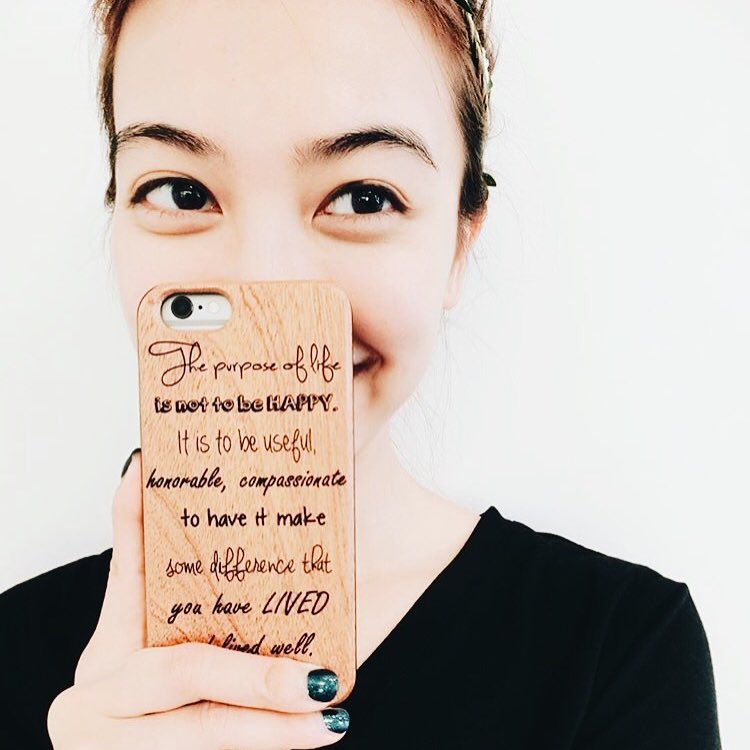 The purpose of life
is not to be HAPPY.
It is to be useful,
honorable, compassionate
to have it make
some difference that
you have LIVED
lived well.